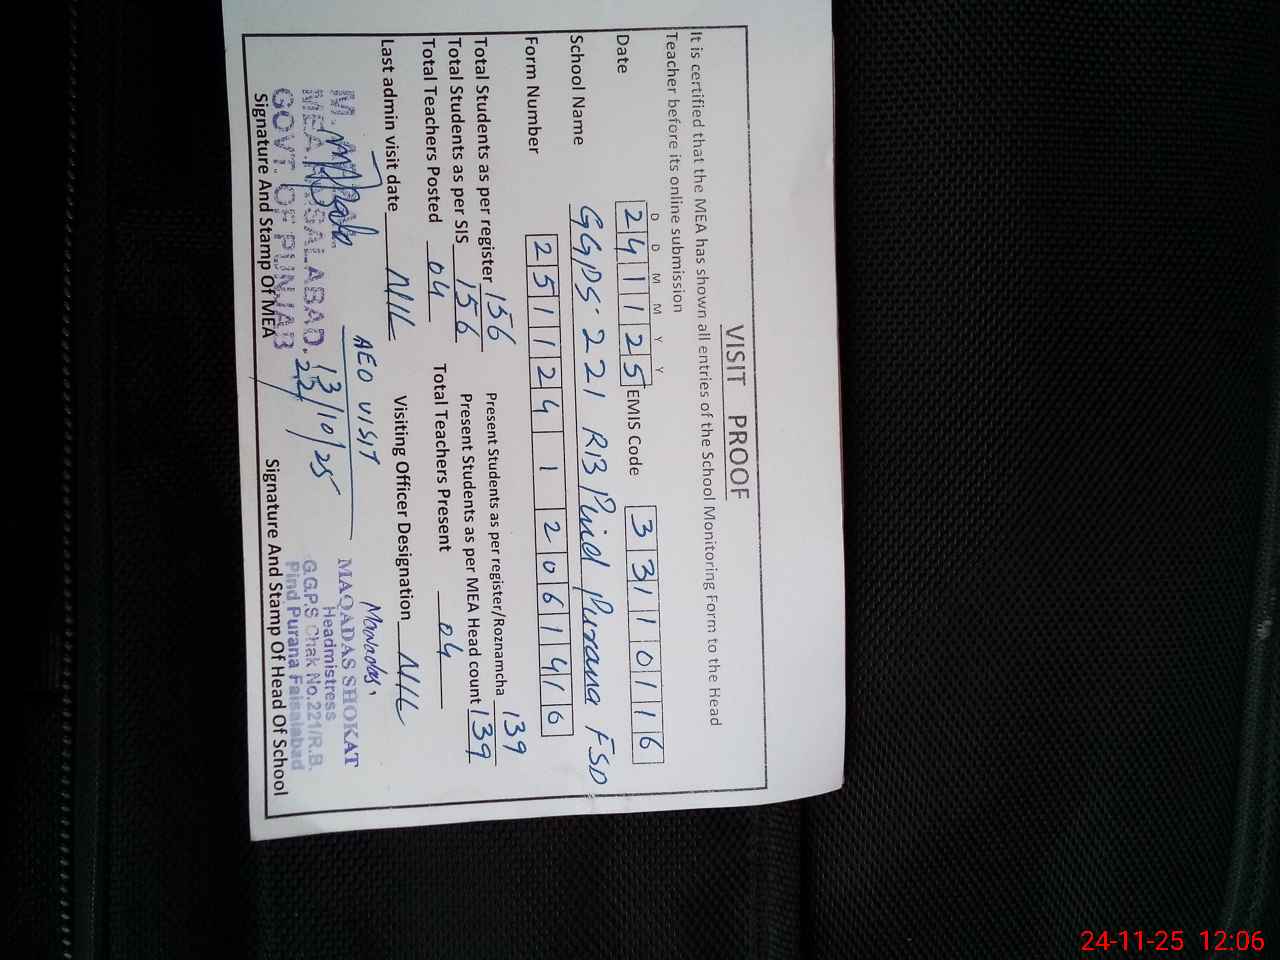 VISIT PROOF
It is certified that the MEA has shown all entries of the School Monitoring Form to the Head
Teacher before its online submission
D D M M Y Y
Date 2 4 1 1 2 5 EMIS Code 3 3 1 1 0 1 1 6
School Name GGPS 221 RB Pind Purana FSD
Form Number 2 5 1 1 2 4 1 2 0 6 1 4 1 6
Total Students as per register 156 Present Students as per register/Roznamcha 139
Total Students as per SIS 156 Present Students as per MEA Head count 139
Total Teachers Posted 04 Total Teachers Present 04
Last admin visit date NIL Visiting Officer Designation NIL
AEO VISIT
13/10/25
MEA FAISALABAD.
GOVT. OF PUNJAB
MAQADAS SHOKAT
Headmistress
G.G.P.S Chak No.221/R.B.
Pind Purana Faisalabad
Signature And Stamp Of MEA Signature And Stamp Of Head Of School
24-11-25 12:06